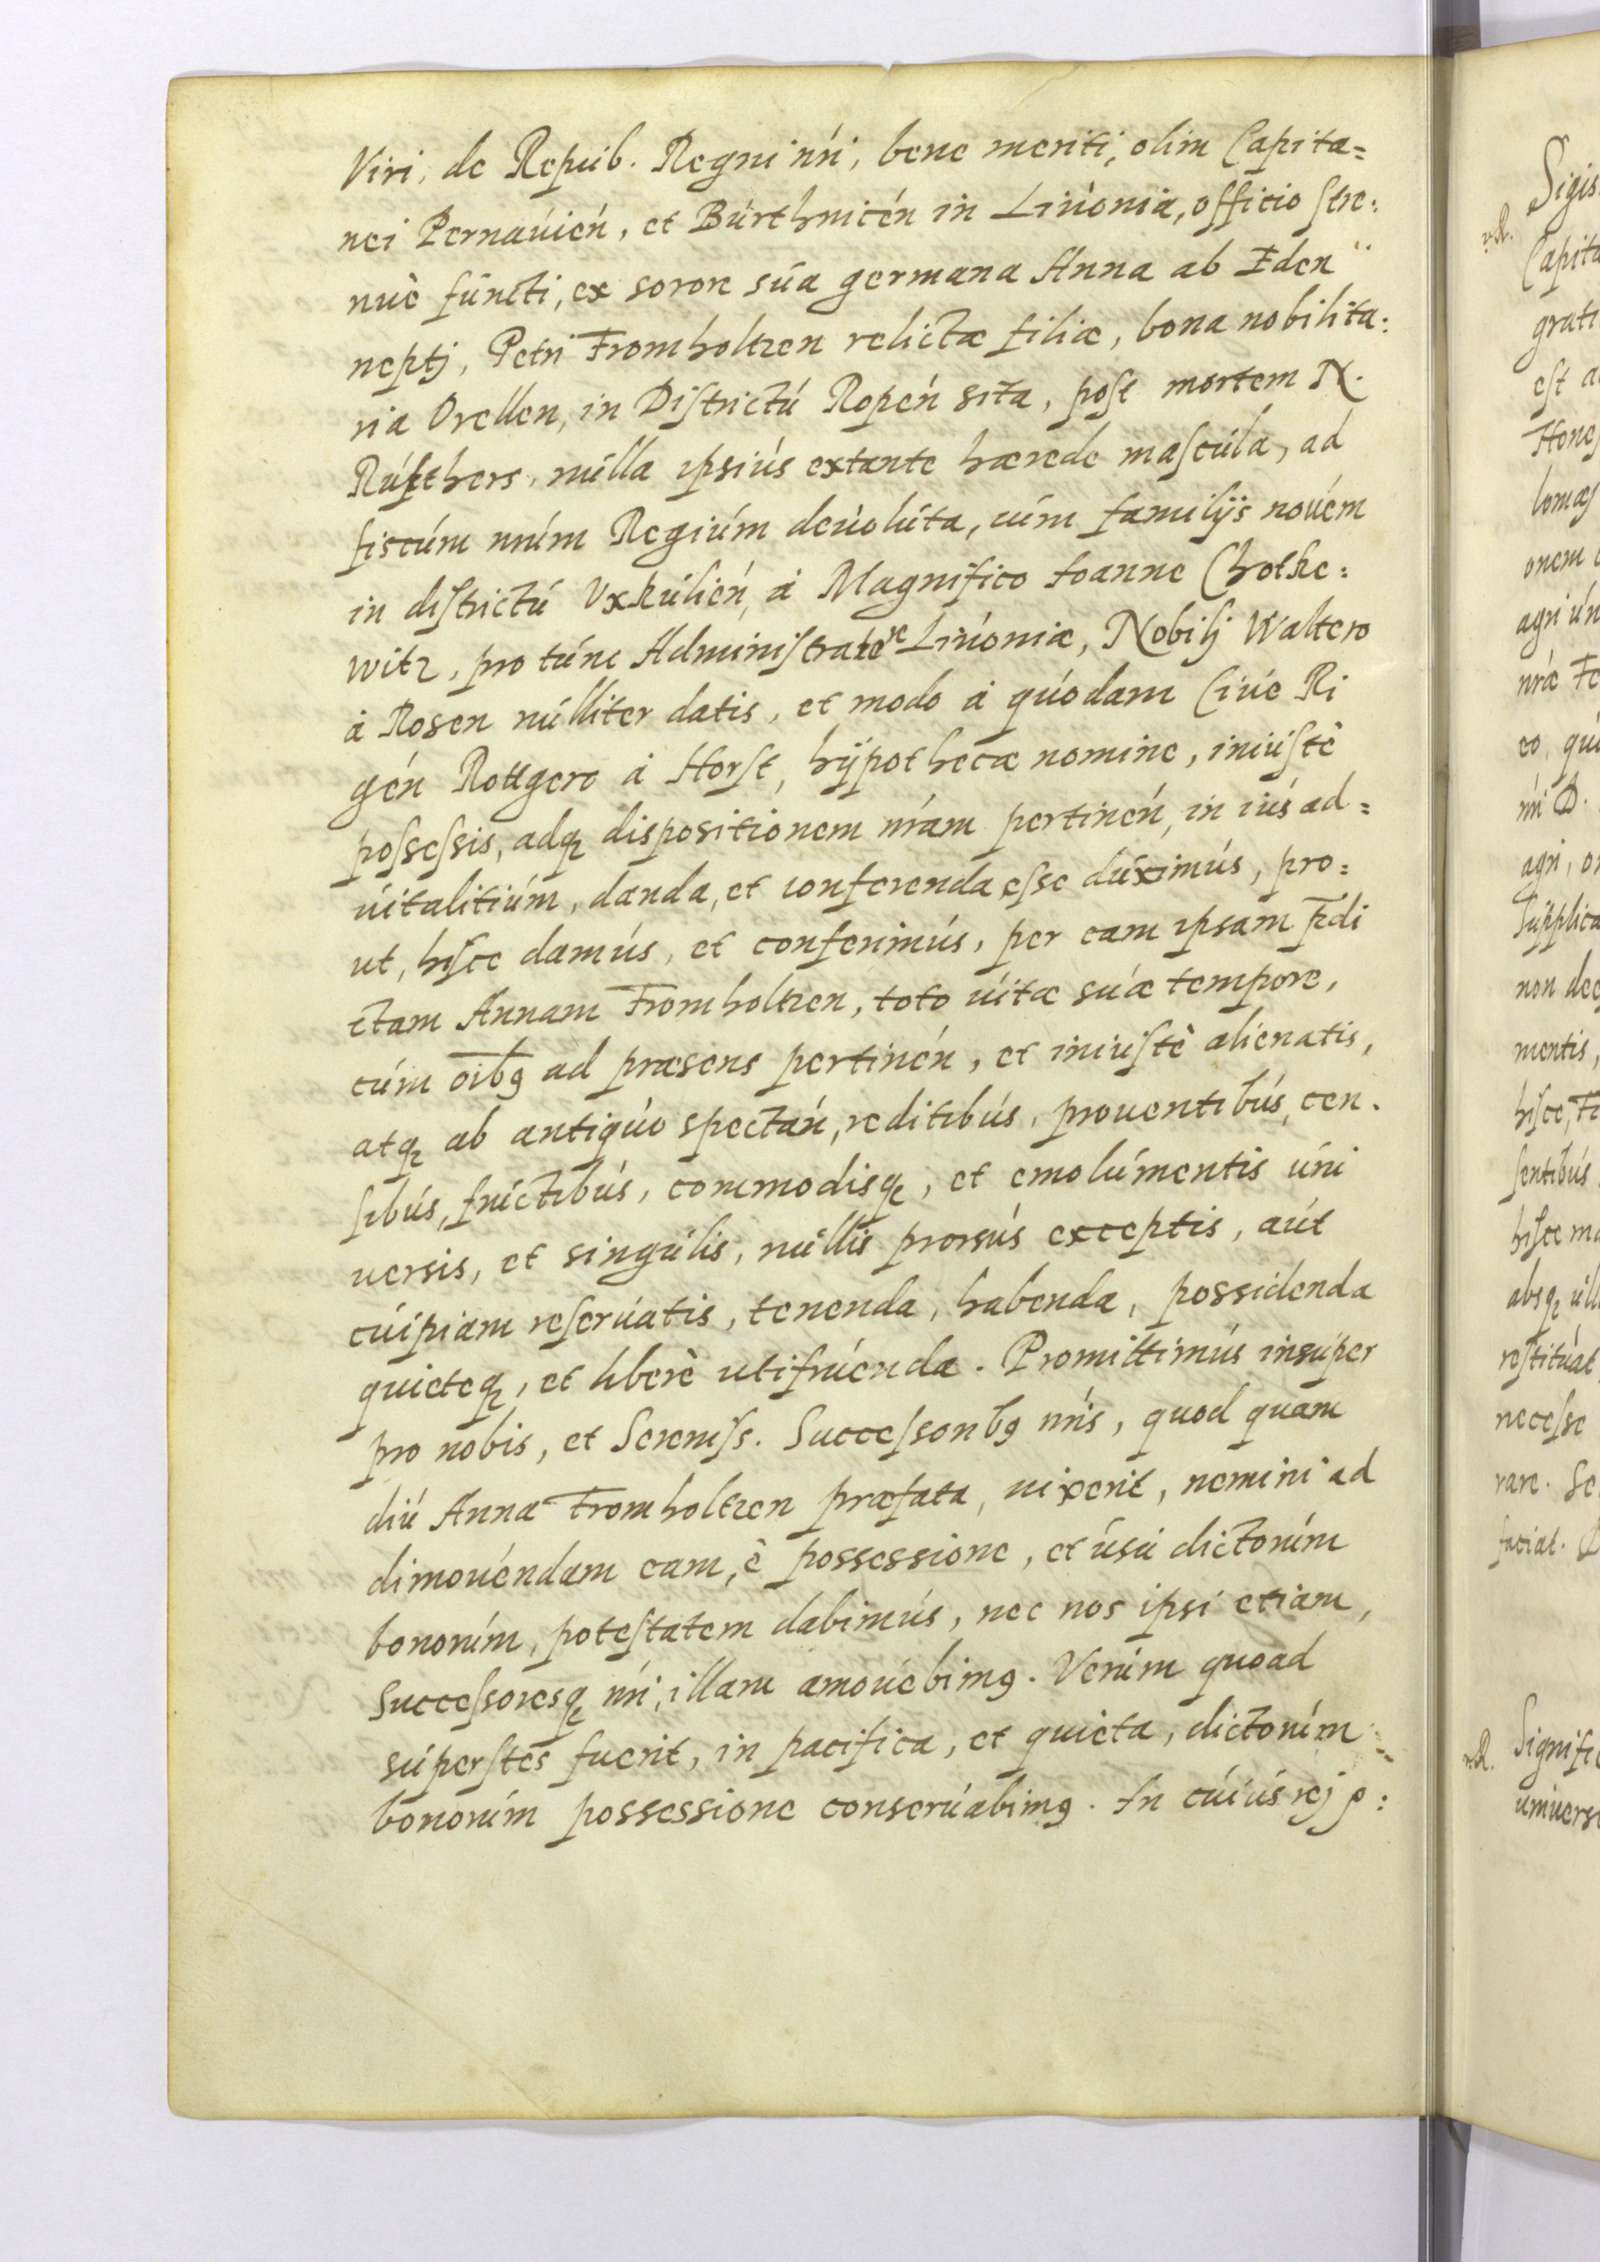 Viri, de Repub. Regni nri, bene meriti, olim Capita=
nei Pernauien, et Burthnicen in Liuonia, officio stre:
nuè functi, ex sorore sua germana Anna ab Eden
neptj, Petri Fromholtzen relictæ filiæ, bona nobilita:
ria Orellen, in Districtu Ropen sita, post mortem N.
nulla ipsius extante hærede mascula, ad
fiscum nrum Regium deuoluta, cum familijs nouem
in districtu Vxkulien, à Magnifico Ioanne Chotke:
witz, pro tunc Administratore Liuoniæ, Nobilj Waltero
à Rosen nulliter datis, et modo à quodam Ciue Ri
gen Rottgero à Horst, hÿpothecæ nomine, iniustè
possessis, adq dispositionem nram pertinen, in ius ad=
uitalitium, danda, et conferenda esse duximus, pro=
ut, hisce damus, et conferimus, per eam ipsam prædi
ctam Annam Fromholtzen, toto uitæ suæ tempore,
cum oibg ad præsens pertinen, et iniustè alienatis,
atq ab antiquo spectan, reditibus, prouentibus, cen.
sibus, fructibus, commodisq, et emolumentis uni
uersis, et singulis, nullis prorsus exceptis, aut
cuipiam reseruatis, tenenda, habenda, possidenda
quieteq, et liberè utifruenda. Promittimus insuper
pro nobis, et Sereniss. Successoribg nris, quod quam
diu Anna Fromholtzen præfata, uixerit, nemini ad
dimouendam eam, è possessione, et usu dictorum
bonorum, potestatem dabimus, nec nos ipsi etiam,
Successoresq nri, illam amouebimg. Verum quoad
superstes fuerit, in pacifica, et quieta, dictorum
bonorum possessione conseruabimg. In cuius rej p:
v.R.
Sigis
Capita
grati
est a
Hones
onem
agri un
nræ Fe
eo, qui
nri D.
agri, on
supplica
non dee
mentis,
hisce, Fr
sentibus
hisce ma
absq ull
restituat
necesse
rare. Se
faciat. D
v.R.
Signific
uniuerse